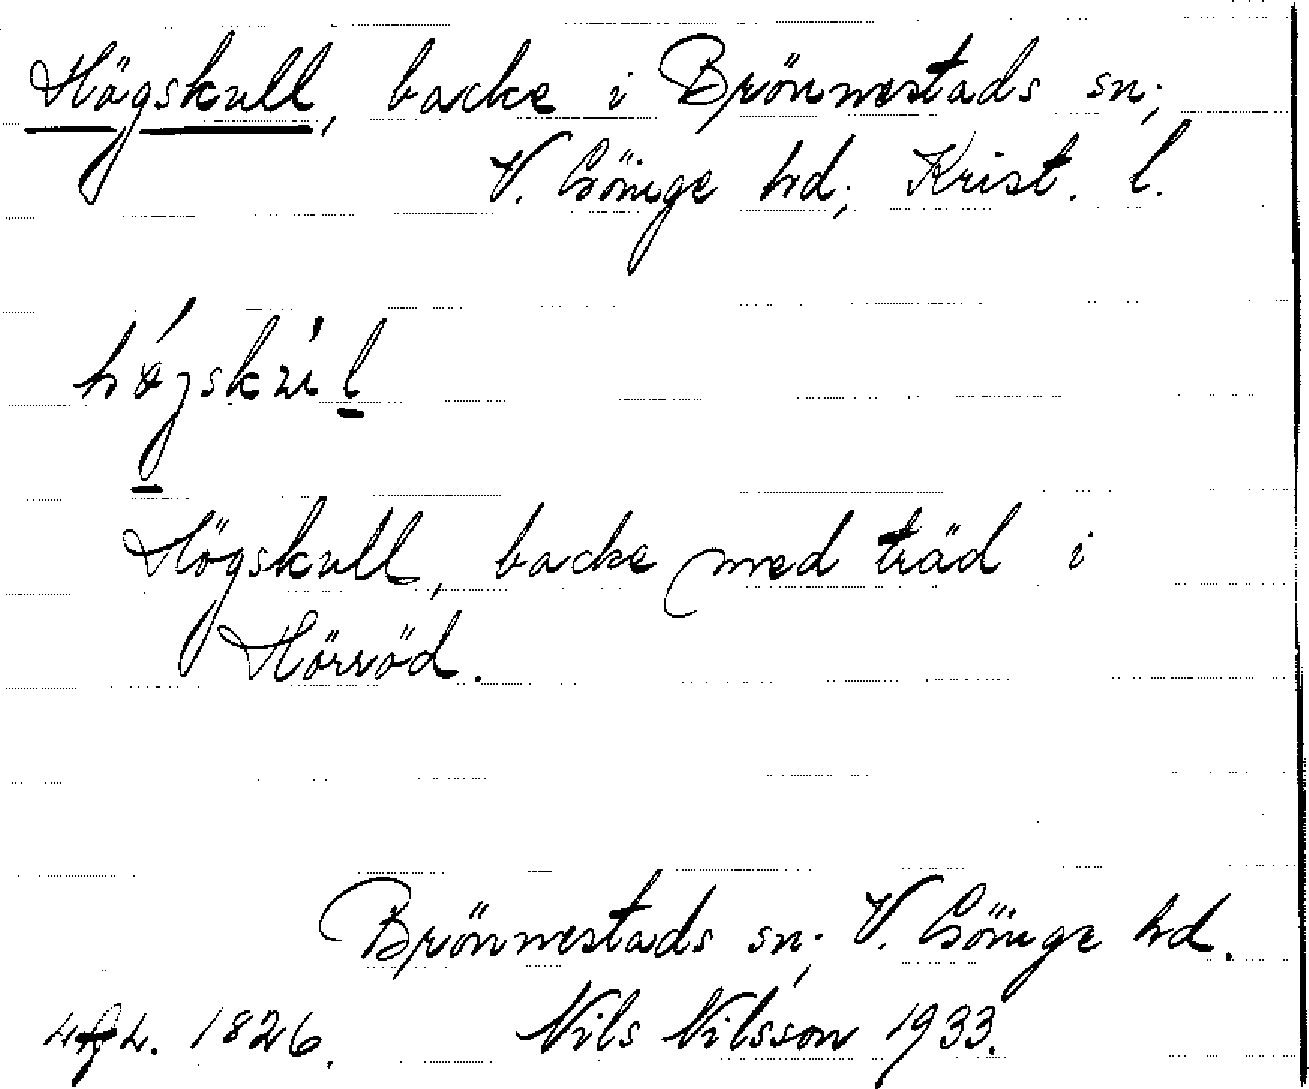 Högskull, backe i Brönnestads sn;
V. Göinge hd; Krist. l.
Högskull, backe med träd i
Hörröd.
Brönnestads sn; V. Göinge hd.
1826. Nils Nilsson 1933.